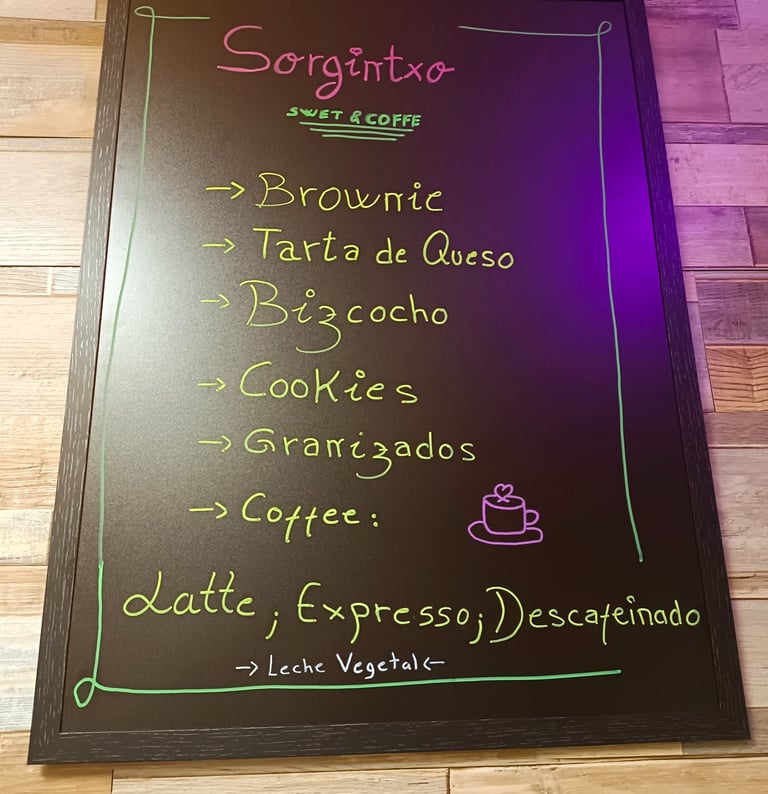 Sorgintxo
SWET & COFFE
→ Brownie
→ Tarta de Queso
→ Bizcocho
→ Cookies
→ Granizados
→ Coffee:
Latte; Expresso; Descafeinado
→ Leche Vegetal ←